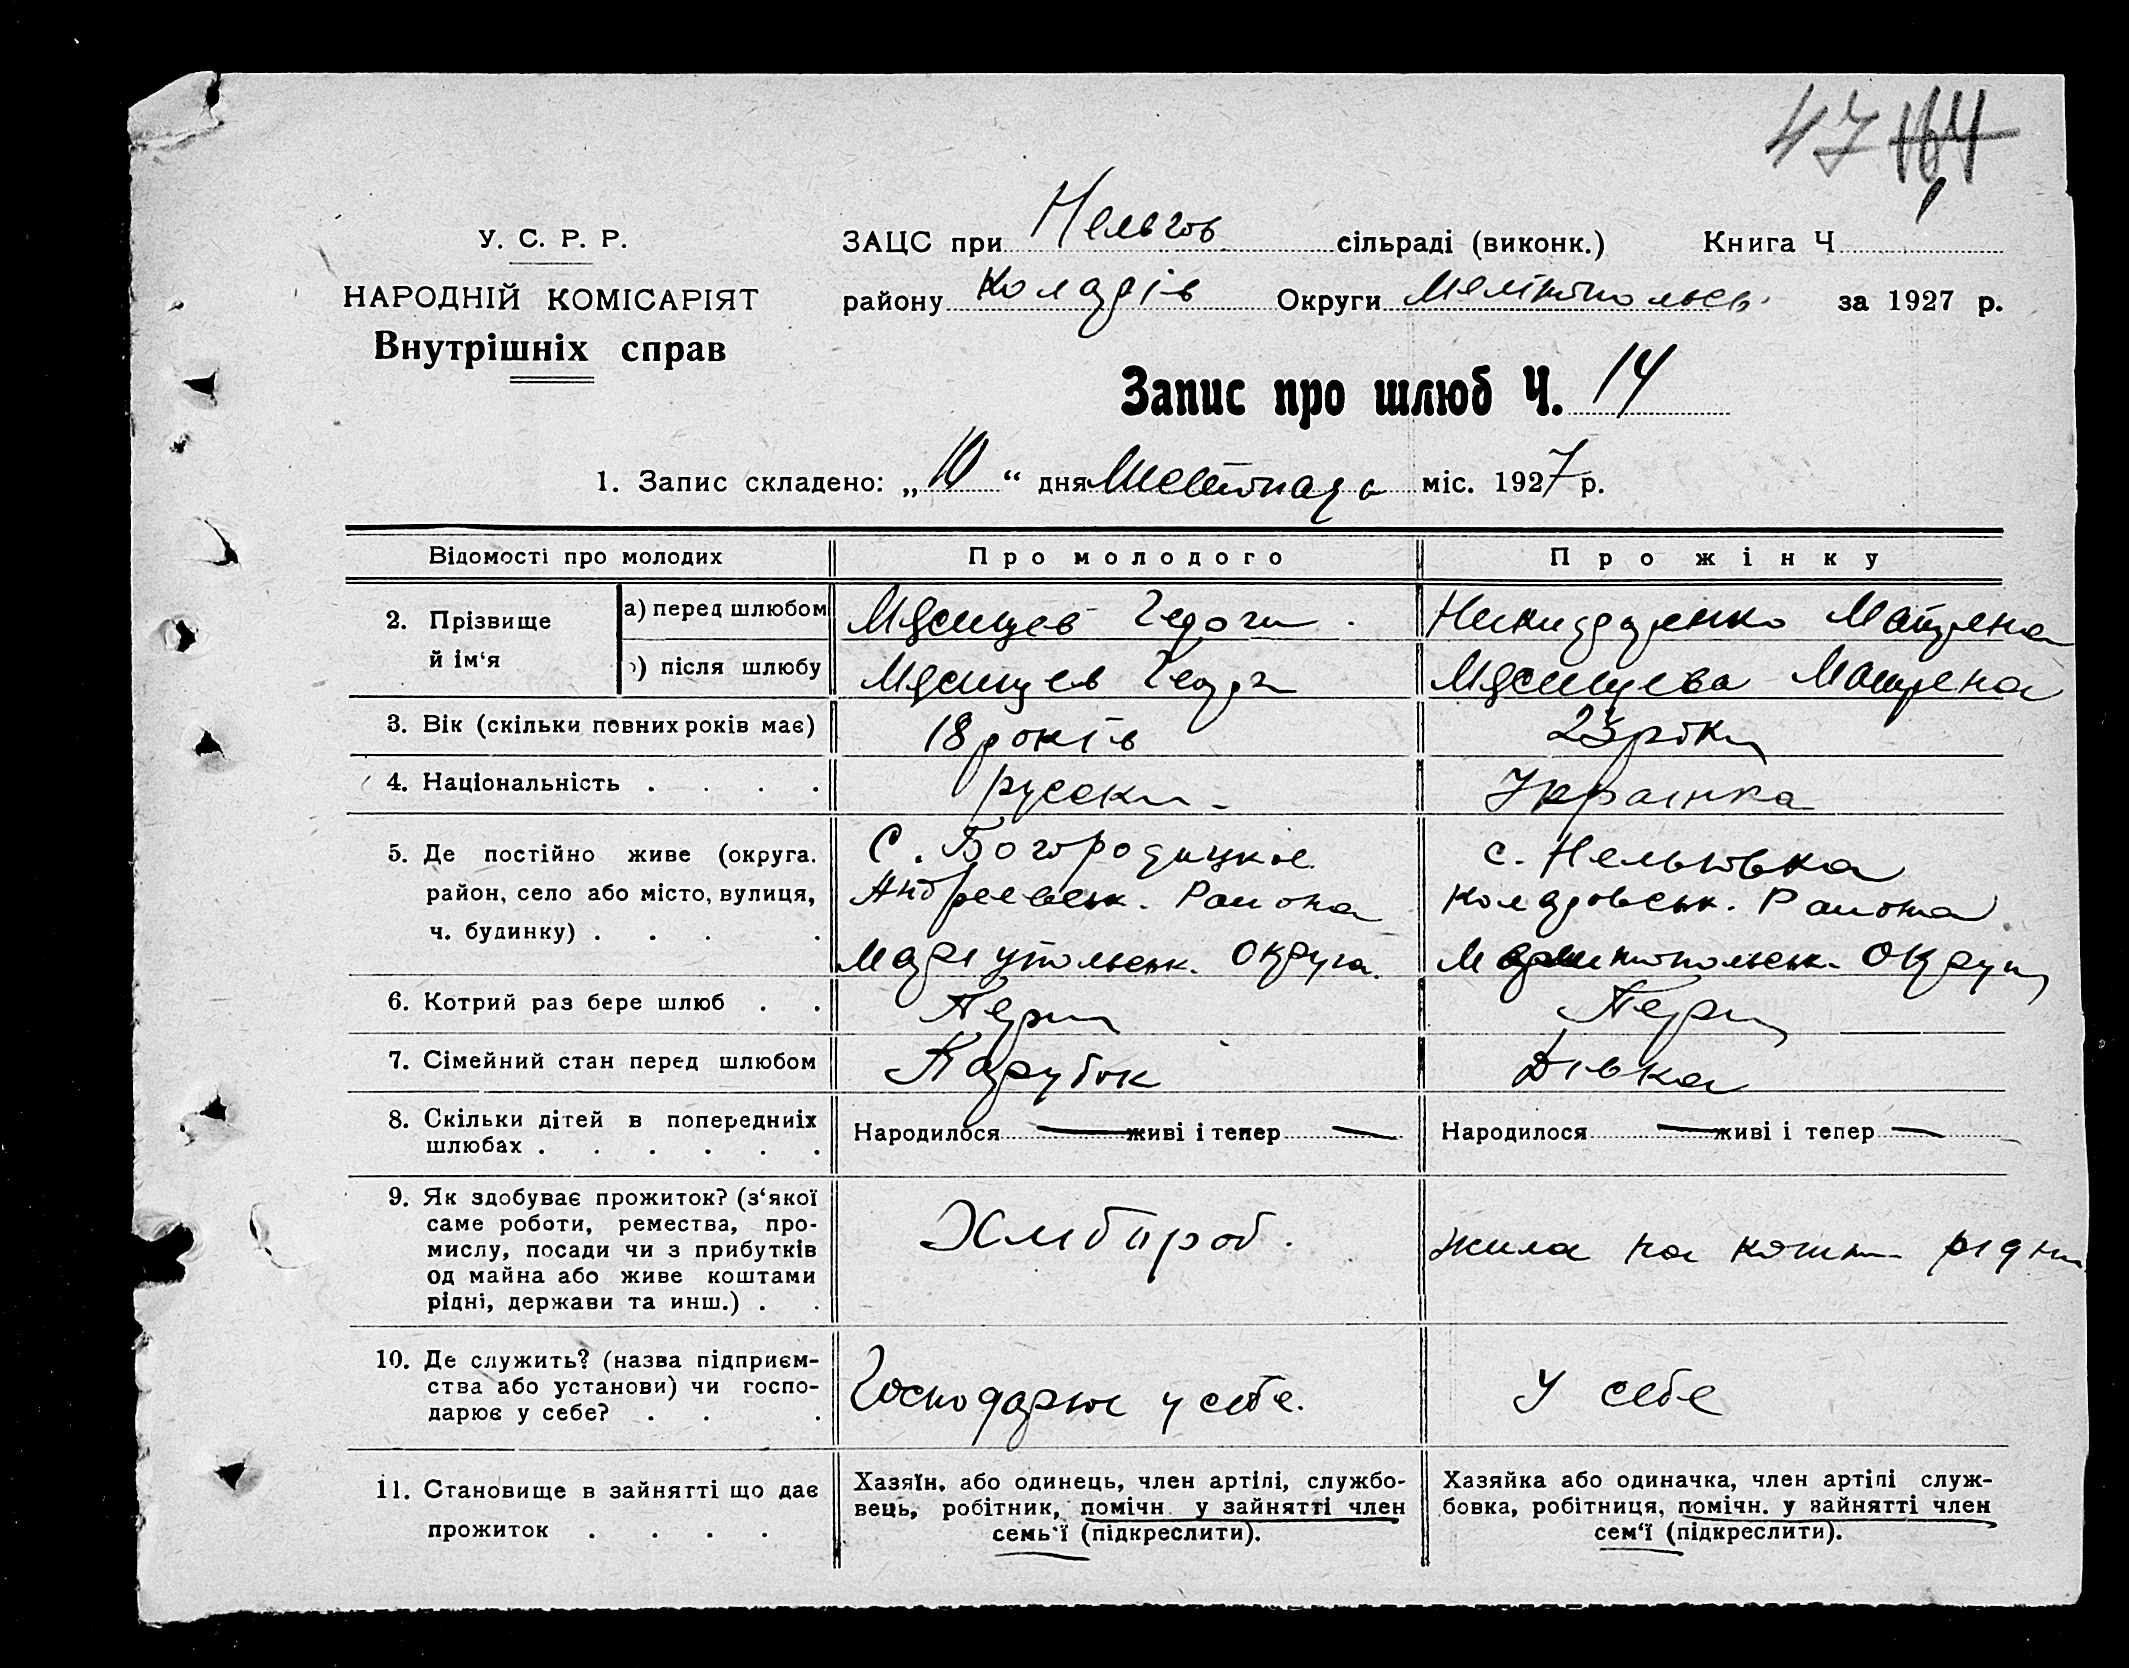 47 164
У. С. Р. Р.
НАРОДНІЙ КОМІСАРІЯТ
Внутрішніх справ
ЗАЦС при Нельгов сільраді (виконк.) Книга Ч 1
району Коларів Округи Мелітопольськ за 1927 р.
Запис про шлюб Ч. 14
1. Запис складено: „10“ дня Листопада міс. 1927 р.
Відомості про молодих
Про молодого
Про жінку
2. Прізвище й ім‘я
а) перед шлюбом
Мясищев
Матрена
) після шлюбу
Мясищев
Мясищева Матрена
3. Вік (скільки повних років має)
18 років
23 роки
4. Національність . . . .
русски
Украінка
5. Де постійно живе (округа.
район, село або місто, вулиця,
ч. будинку) . . . .
С. Богородицкое
Андреевськ. Раиона
Маріупольськ. Округа.
с. Нельговка
Коларовськ. Раиона
Округи
6. Котрий раз бере шлюб . .
Перш
Перш
7. Сімейний стан перед шлюбом
Парубок
Дівка
8. Скільки дітей в попередниіх
шлюбах . . . . . .
Народилося — живі і тепер —
Народилося — живі і тепер —
9. Як здобуває прожиток? (з‘якої
саме роботи, ремества, про-
мислу, посади чи з прибутків
од майна або живе коштами
рідні, держави та инш.) . .
Хлібороб.
жила на кошти рідни
10. Де служить? (назва підприєм-
ства або установи) чи госпо-
дарює у себе? . . .
Господарює у себе.
У себе
11. Становище в зайнятті що дає
прожиток . . . .
Хазяїн, або одинець, член артілі, службо-
вець, робітник, помічн. у зайнятті член
семь‘ї (підкреслити).
Хазяйка або одиначка, член артілі служ-
бовка, робітниця, помічн. у зайнятті член
сем‘ї (підкреслити).